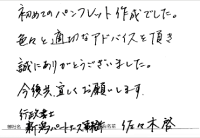 初めてのパンフレット作成でした。
色々と適切なアドバイスを頂き
誠にありがとうございました。
今後共、宜しくお願いします。
行政書士
新潟パートナーズ事務所 佐々木 啓